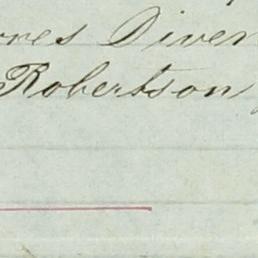 Diver
Robertson